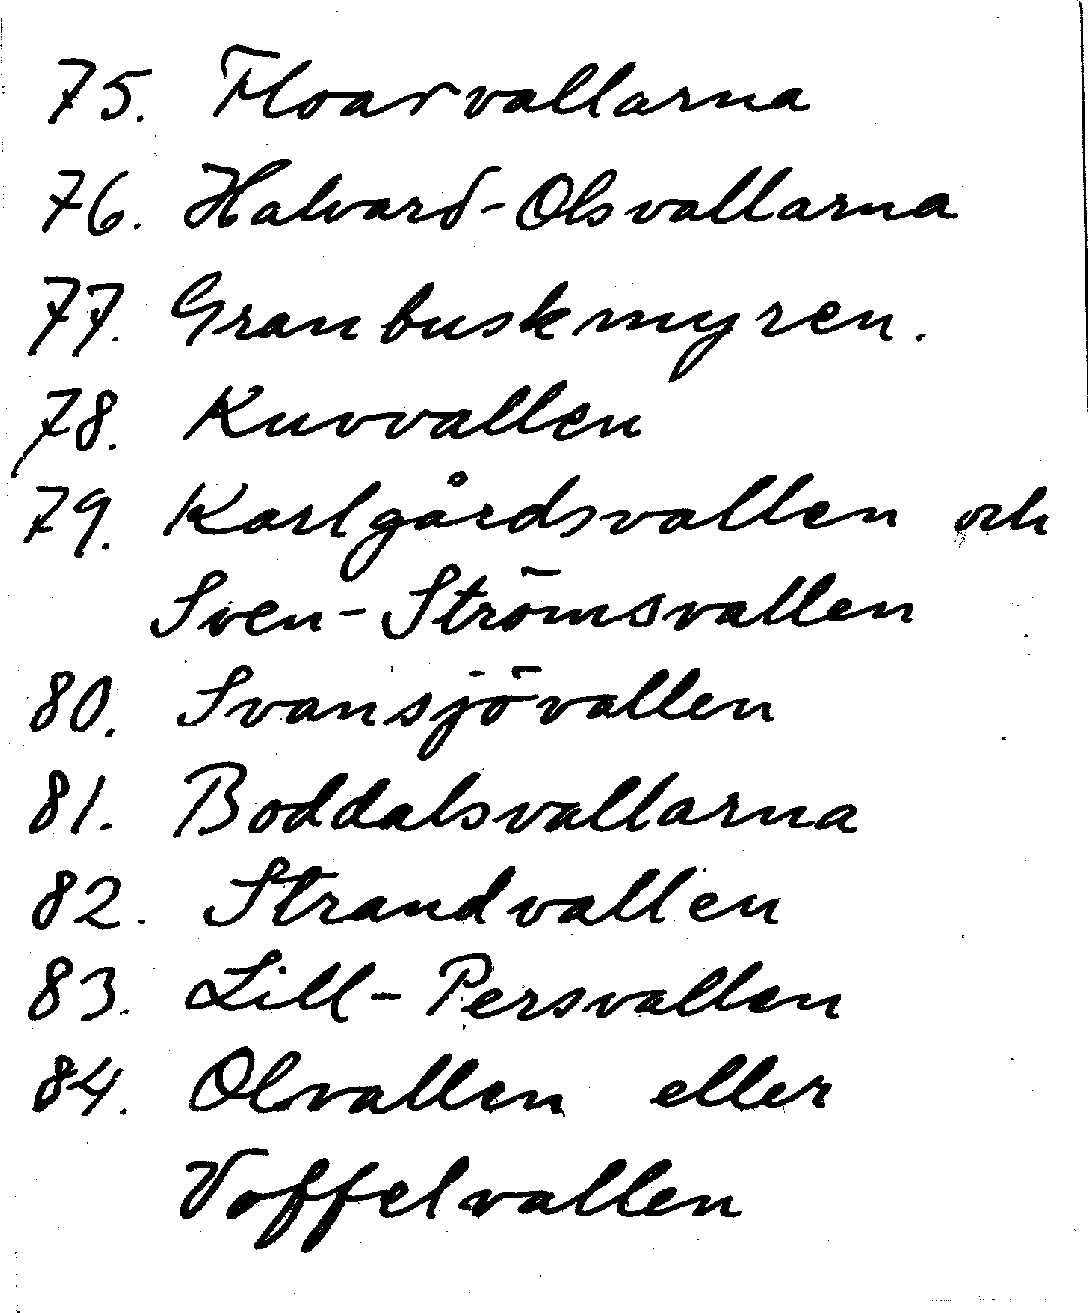 75. Floarvallarna
76. Halvard-Olsvallarna
77. Granbuskmyren.
78. Kuvvallen
79. Karlgårdsvallen och
Sven-Strömsvallen
80. Svansjövallen
81. Boddalsvallarna
82. Strandvallen
83. Lill-Persvallen
84. Olvallen eller
Voffelvallen